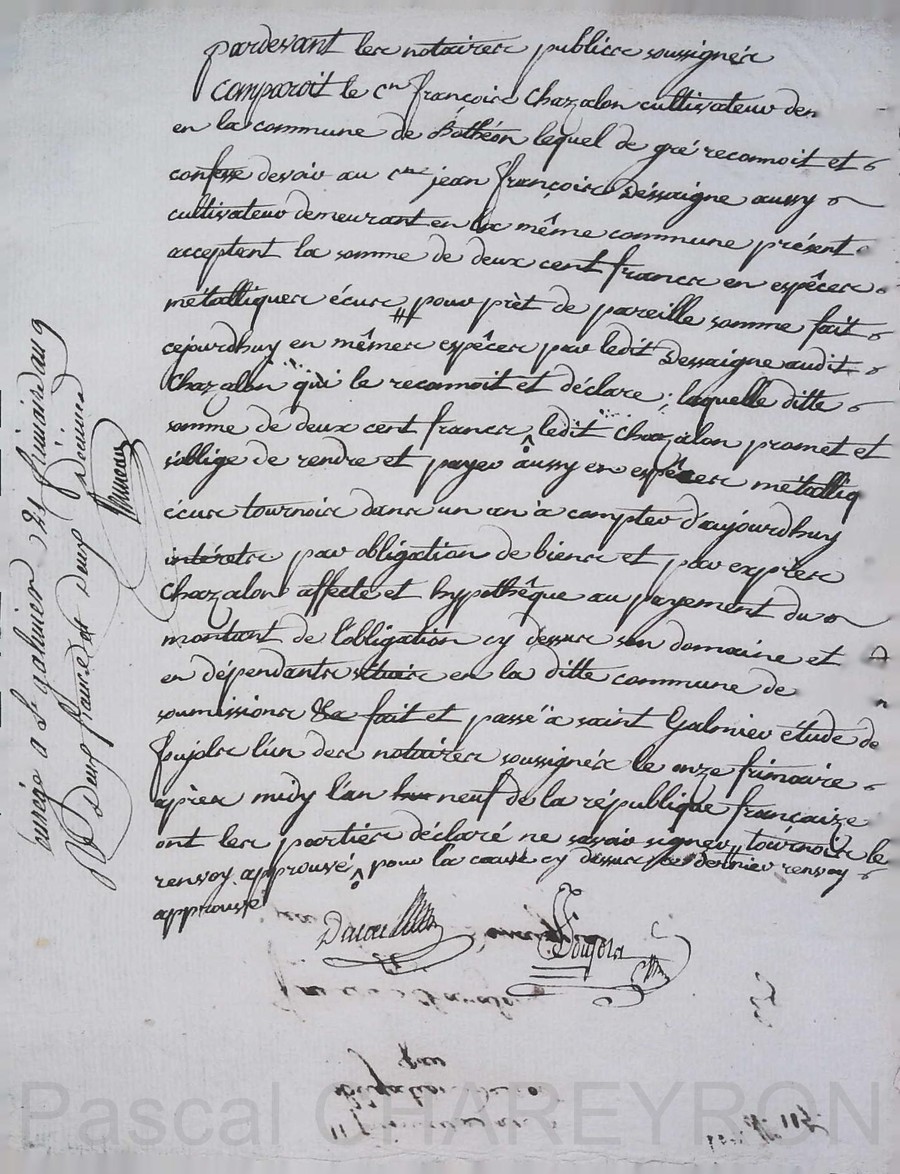 pardevant les notaires publics soussignés
comparoit le cn françois Chazalon cultivateur dem
en la commune de Bothéon lequel de gré reconnoit et
confesse devoir au cen jean françois Dessaigne aussy
cultivateur demeurant en la même commune présent
acceptent la somme de deux cent francs en espêces
métalliques écus pour prèt de pareille somme fait
cejourdhuy en mêmes espêces par ledit Dessaigne audit
Chazalon qui le reconnoit et déclare; laquelle ditte
somme de deux cent francs ledit Chazalon promet et
s'oblige de rendre et payer aussy en espêces métalliq
écus tournois dans un an à compter d'aujourdhuy
intérets par obligation de biens et par exprès
Chazalon affecte et hypothêque au payement du
montant de l'obligation cy dessus son domaine et
en dépendants situés en la ditte commune de
soumissions &a fait et passé à saint Galmier étude de
Pujols l'un des notaires soussignés le onze frimaire
après midy l'an neuf de la république françaize
ont les parties déclaré ne savoir signer, tournois le
renvoy approuvé, pour la cause cy dessus le dernier renvoy
approuvé
Pujols
Pascal CHAREYRON